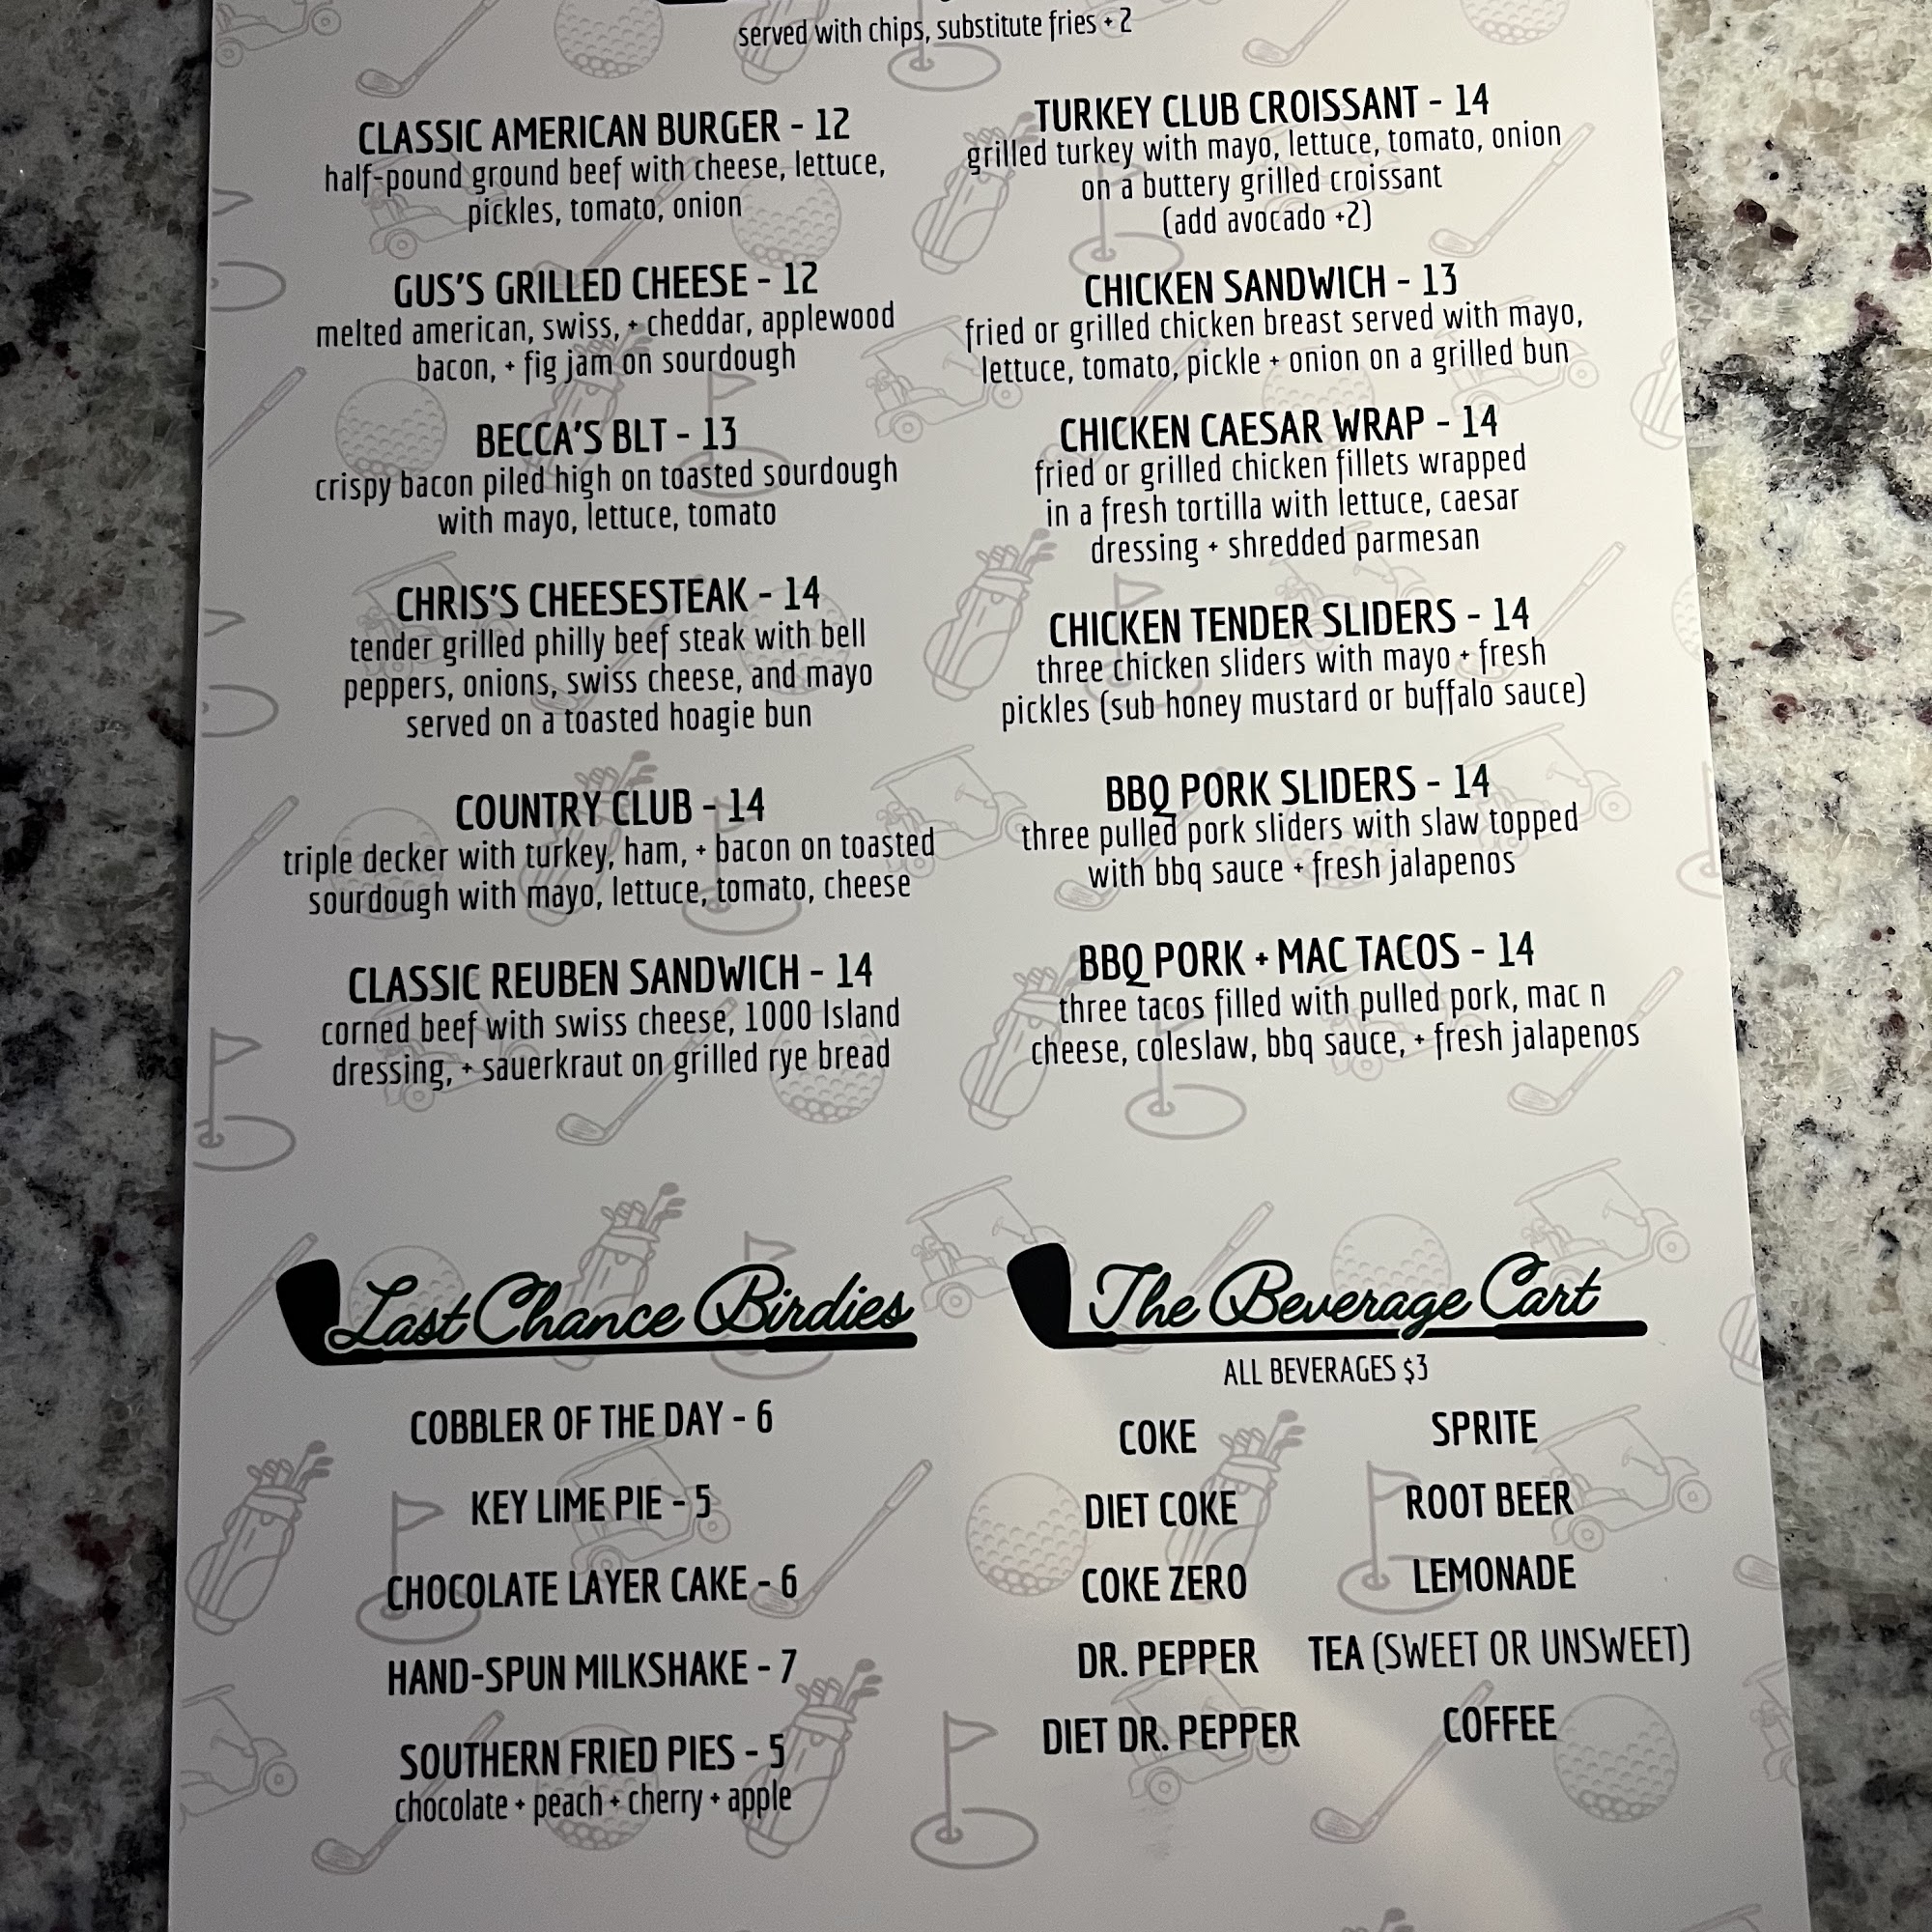 served with chips, substitute fries + 2
CLASSIC AMERICAN BURGER - 12
half-pound ground beef with cheese, lettuce,
pickles, tomato, onion
GUS'S GRILLED CHEESE - 12
melted american, swiss, + cheddar, applewood
bacon, + fig jam on sourdough
BECCA'S BLT - 13
crispy bacon piled high on toasted sourdough
with mayo, lettuce, tomato
CHRIS'S CHEESESTEAK - 14
tender grilled philly beef steak with bell
peppers, onions, swiss cheese, and mayo
served on a toasted hoagie bun
COUNTRY CLUB - 14
triple decker with turkey, ham, + bacon on toasted
sourdough with mayo, lettuce, tomato, cheese
CLASSIC REUBEN SANDWICH - 14
corned beef with swiss cheese, 1000 Island
dressing, + sauerkraut on grilled rye bread
TURKEY CLUB CROISSANT - 14
grilled turkey with mayo, lettuce, tomato, onion
on a buttery grilled croissant
(add avocado +2)
CHICKEN SANDWICH - 13
fried or grilled chicken breast served with mayo,
lettuce, tomato, pickle + onion on a grilled bun
CHICKEN CAESAR WRAP - 14
fried or grilled chicken fillets wrapped
in a fresh tortilla with lettuce, caesar
dressing + shredded parmesan
CHICKEN TENDER SLIDERS - 14
three chicken sliders with mayo + fresh
pickles (sub honey mustard or buffalo sauce)
BBQ PORK SLIDERS - 14
three pulled pork sliders with slaw topped
with bbq sauce + fresh jalapenos
BBQ PORK + MAC TACOS - 14
three tacos filled with pulled pork, mac n
cheese, coleslaw, bbq sauce, + fresh jalapenos
Last Chance Birdies
COBBLER OF THE DAY - 6
KEY LIME PIE - 5
CHOCOLATE LAYER CAKE - 6
HAND-SPUN MILKSHAKE - 7
SOUTHERN FRIED PIES - 5
chocolate + peach + cherry + apple
The Beverage Cart
ALL BEVERAGES $3
COKE
DIET COKE
COKE ZERO
DR. PEPPER
DIET DR. PEPPER
SPRITE
ROOT BEER
LEMONADE
TEA (SWEET OR UNSWEET)
COFFEE